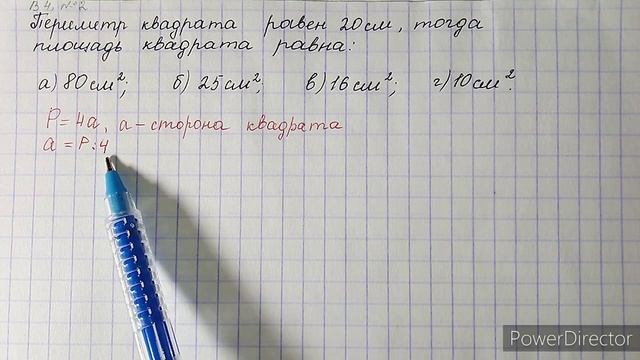 В 4, №2
Периметр квадрата равен 20 см, тогда
площадь квадрата равна:
а) 80 см²; б) 25 см²; в) 16 см²; г) 10 см².
P = 4a, a – сторона квадрата
a = P : 4
PowerDirector